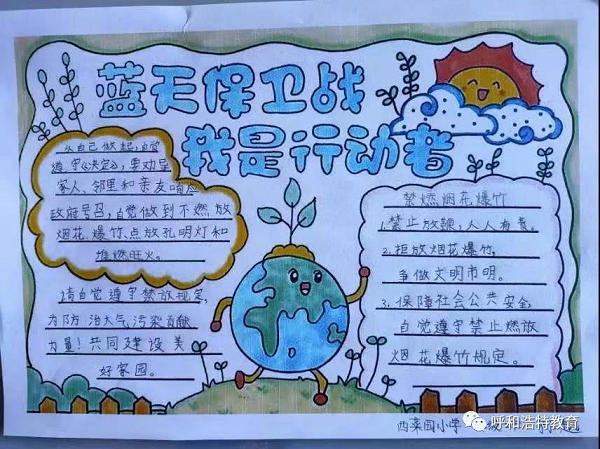 蓝天保卫战
我是行动者
从自己做起,自觉
遵守《决定》,要劝导
家人、邻里和亲友响应
政府号召,自觉做到不燃放
烟花、爆竹、点放孔明灯和
堆燃旺火。
请自觉遵守禁放规定,
为防治大气污染贡献
力量!共同建设美
好家园。
禁燃烟花爆竹
1.禁止放鞭,人人有责。
2.拒放烟花爆竹,
争做文明市明。
3.保障社会公共安全
自觉遵守禁止燃放
烟花爆竹规定。
西菜园小学
呼和浩特教育